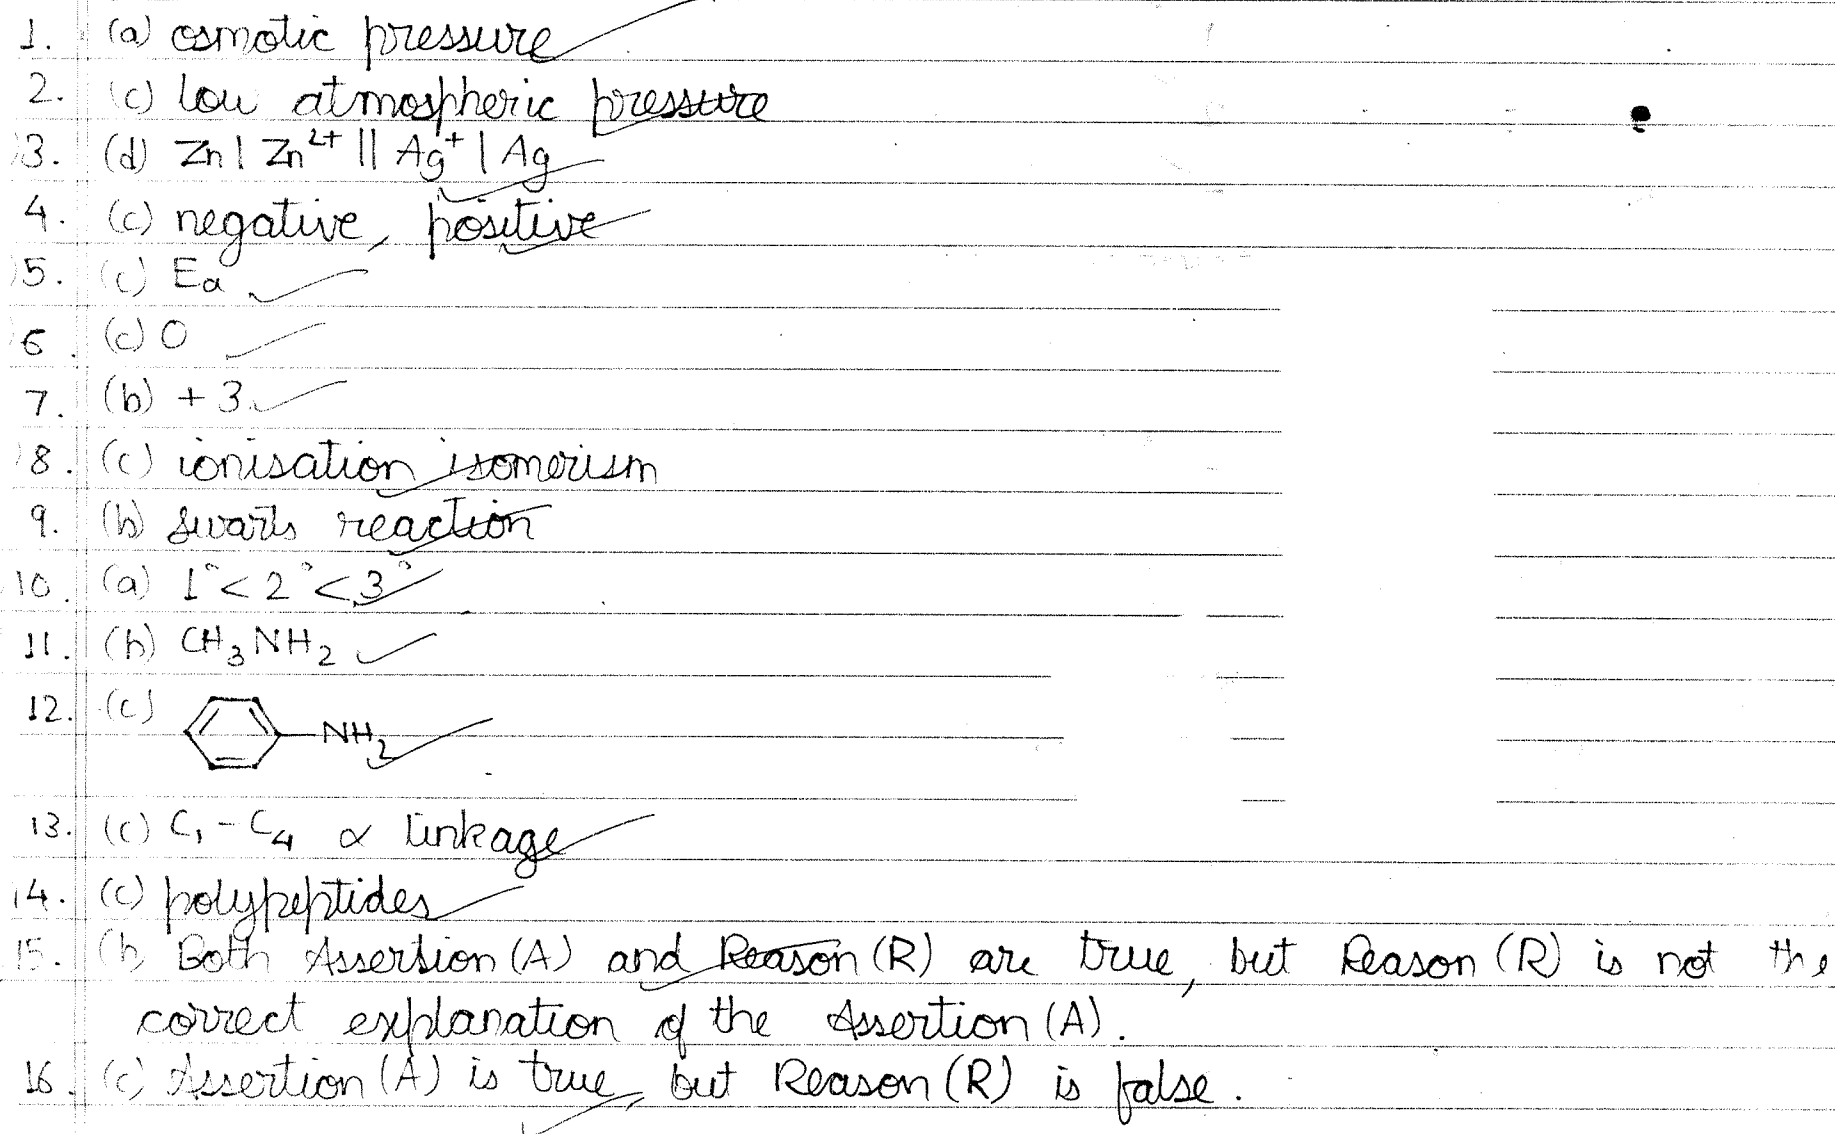 1. (a) osmotic pressure
2. (c) low atmospheric pressure
3. (d) Zn | Zn²⁺ || Ag⁺ | Ag
4. (c) negative, positive
5. (c) Ea
6. (c) 0
7. (b) +3
8. (c) ionisation isomerism
9. (b) Swarts reaction
10. (a) 1° < 2° < 3°
11. (b) CH₃NH₂
12. (c) NH₂
13. (c) C₁ - C₄ α linkage
14. (c) polypeptides
15. (b) Both Assertion (A) and Reason (R) are true, but Reason (R) is not the
correct explanation of the Assertion (A).
16. (c) Assertion (A) is true, but Reason (R) is false.